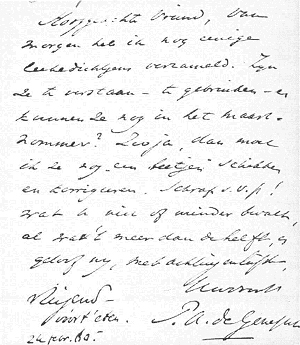 Hooggeachte Vriend, Van
morgen heb ik nog eenige
liefdedichtjens verzameld. Zijn
ze te verstaan - te gebruiken - en
kunnen ze nog in het maart-
nommer? Zoo ja, dan moet
ik ze nog een beetjen schikken
en korrigeeren. Schrap s.v.p!
wat u niet of minder bevalt,
al wat 't meer dan de helft, en
geloof mij, met achting en liefde,
P. A. de Genestet
24 febr. 60.